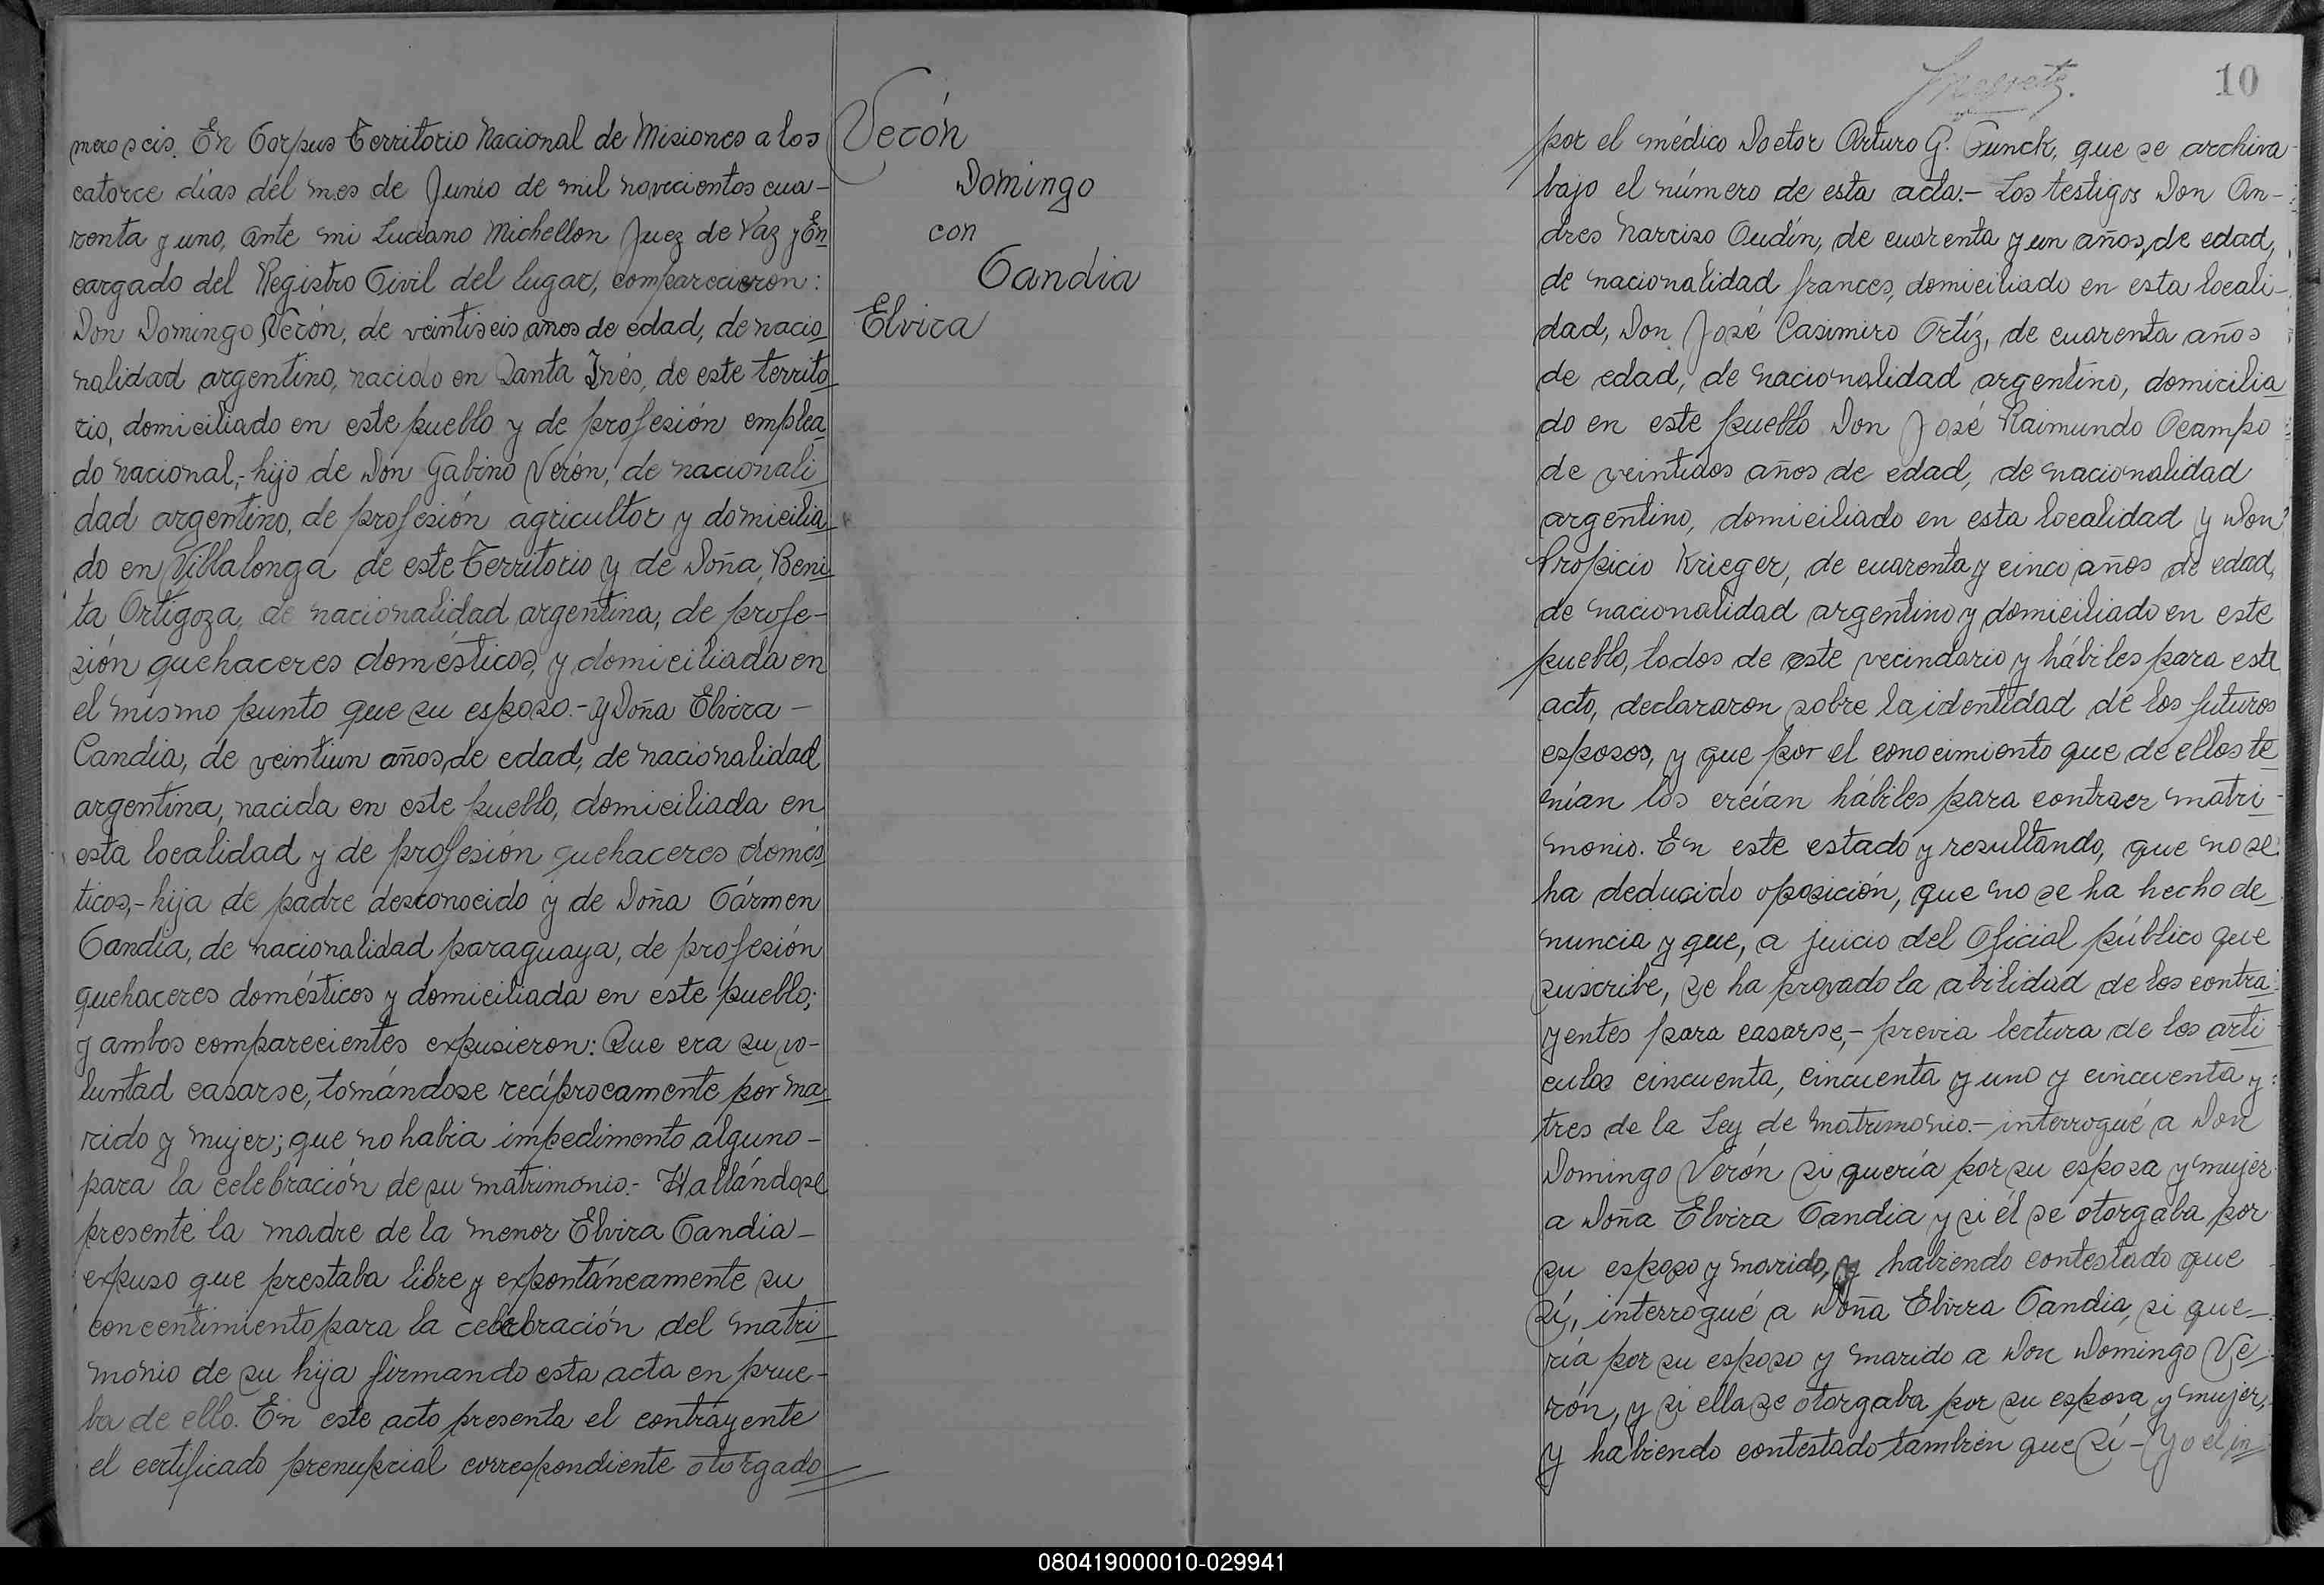 mero seis. En Corpus Territorio Nacional de Misiones a los
catorce días del mes de Junio de mil novecientos cua-
renta y uno, ante mi Luciano Michellon Juez de Paz y En
cargado del Registro Civil del lugar, comparecieron:
Don Domingo Verón, de veintiseis años de edad, de nacio
nalidad argentino, nacido en Santa Inés, de este territo
rio, domiciliado en este pueblo y de profesión emplea
do nacional,- hijo de Don Gabino Verón, de nacionali
dad argentino, de profesión agricultor y domicilia
do en Villalonga de este Territorio y de Doña Beni
ta Ortigoza, de nacionalidad argentina, de profe-
sión quehaceres domésticos, y domiciliada en
el mismo punto que su esposo.- y Doña Elvira -
Candia, de veintiun años, de edad, de nacionalidad
argentina, nacida en este pueblo, domiciliada en
esta localidad y de profesión quehaceres domés
ticos,- hija de padre desconocido y de Doña Cármen
Candia, de nacionalidad paraguaya, de profesión
quehaceres domésticos y domiciliada en este pueblo;
y ambos comparecientes expusieron: Que era su vo-
luntad casarse, tomándose recíprocamente por ma
rido y mujer; que no habia impedimento alguno -
para la celebración de su matrimonio.- Hallándose
presente la madre de la menor Elvira Candia -
expuso que prestaba libre y expontáneamente su
concentimiento para la celebración del matri
monio de su hija firmando esta acta en prue-
ba de ello. En este acto presenta el contrayente
el certificado prenupcial correspondiente otorgado
Verón
Domingo
con
Candia
Elvira
10
por el médico Doctor Arturo G. Gunck, que se archiva
bajo el número de esta acta.- Los testigos Don An-
dres Narciso Oudín, de cuarenta y un años, de edad,
de nacionalidad frances, domiciliado en esta locali-
dad, Don José Casimiro Ortíz, de cuarenta años
de edad, de nacionalidad argentino, domicilia
do en este pueblo Don José Raimundo Ocampo
de veintidos años de edad, de nacionalidad
argentino, domiciliado en esta localidad y Don
Propicio Krieger, de cuarenta y cinco años de edad,
de nacionalidad argentino y domiciliado en este
pueblo, todos de este vecindario y hábiles para este
acto, declararon sobre la identidad de los futuros
esposos, y que por el conocimiento que de ellos te
nían los creían hábiles para contraer matri-
monio. En este estado y resultando, que no se
ha deducido oposición, que no se ha hecho de
nuncia y que, a juicio del Oficial público que
suscribe, se ha provado la abilidad de los contra
yentes para casarse,- previa lectura de los arti
culos cincuenta, cincuenta y uno y cincuenta y
tres de la Ley de Matrimonio.- interrogué a Don
Domingo Verón si quería por su esposa y mujer
a Doña Elvira Candia y si él se otorgaba por
su esposo y marido, y habiendo contestado que
sí, interrogué a Doña Elvira Candia, si que-
ría por su esposo y marido a Don Domingo Ve
rón, y si ella se otorgaba por su esposa y mujer,
y habiendo contestado tambien que sí - Yo el in
080419000010-029941